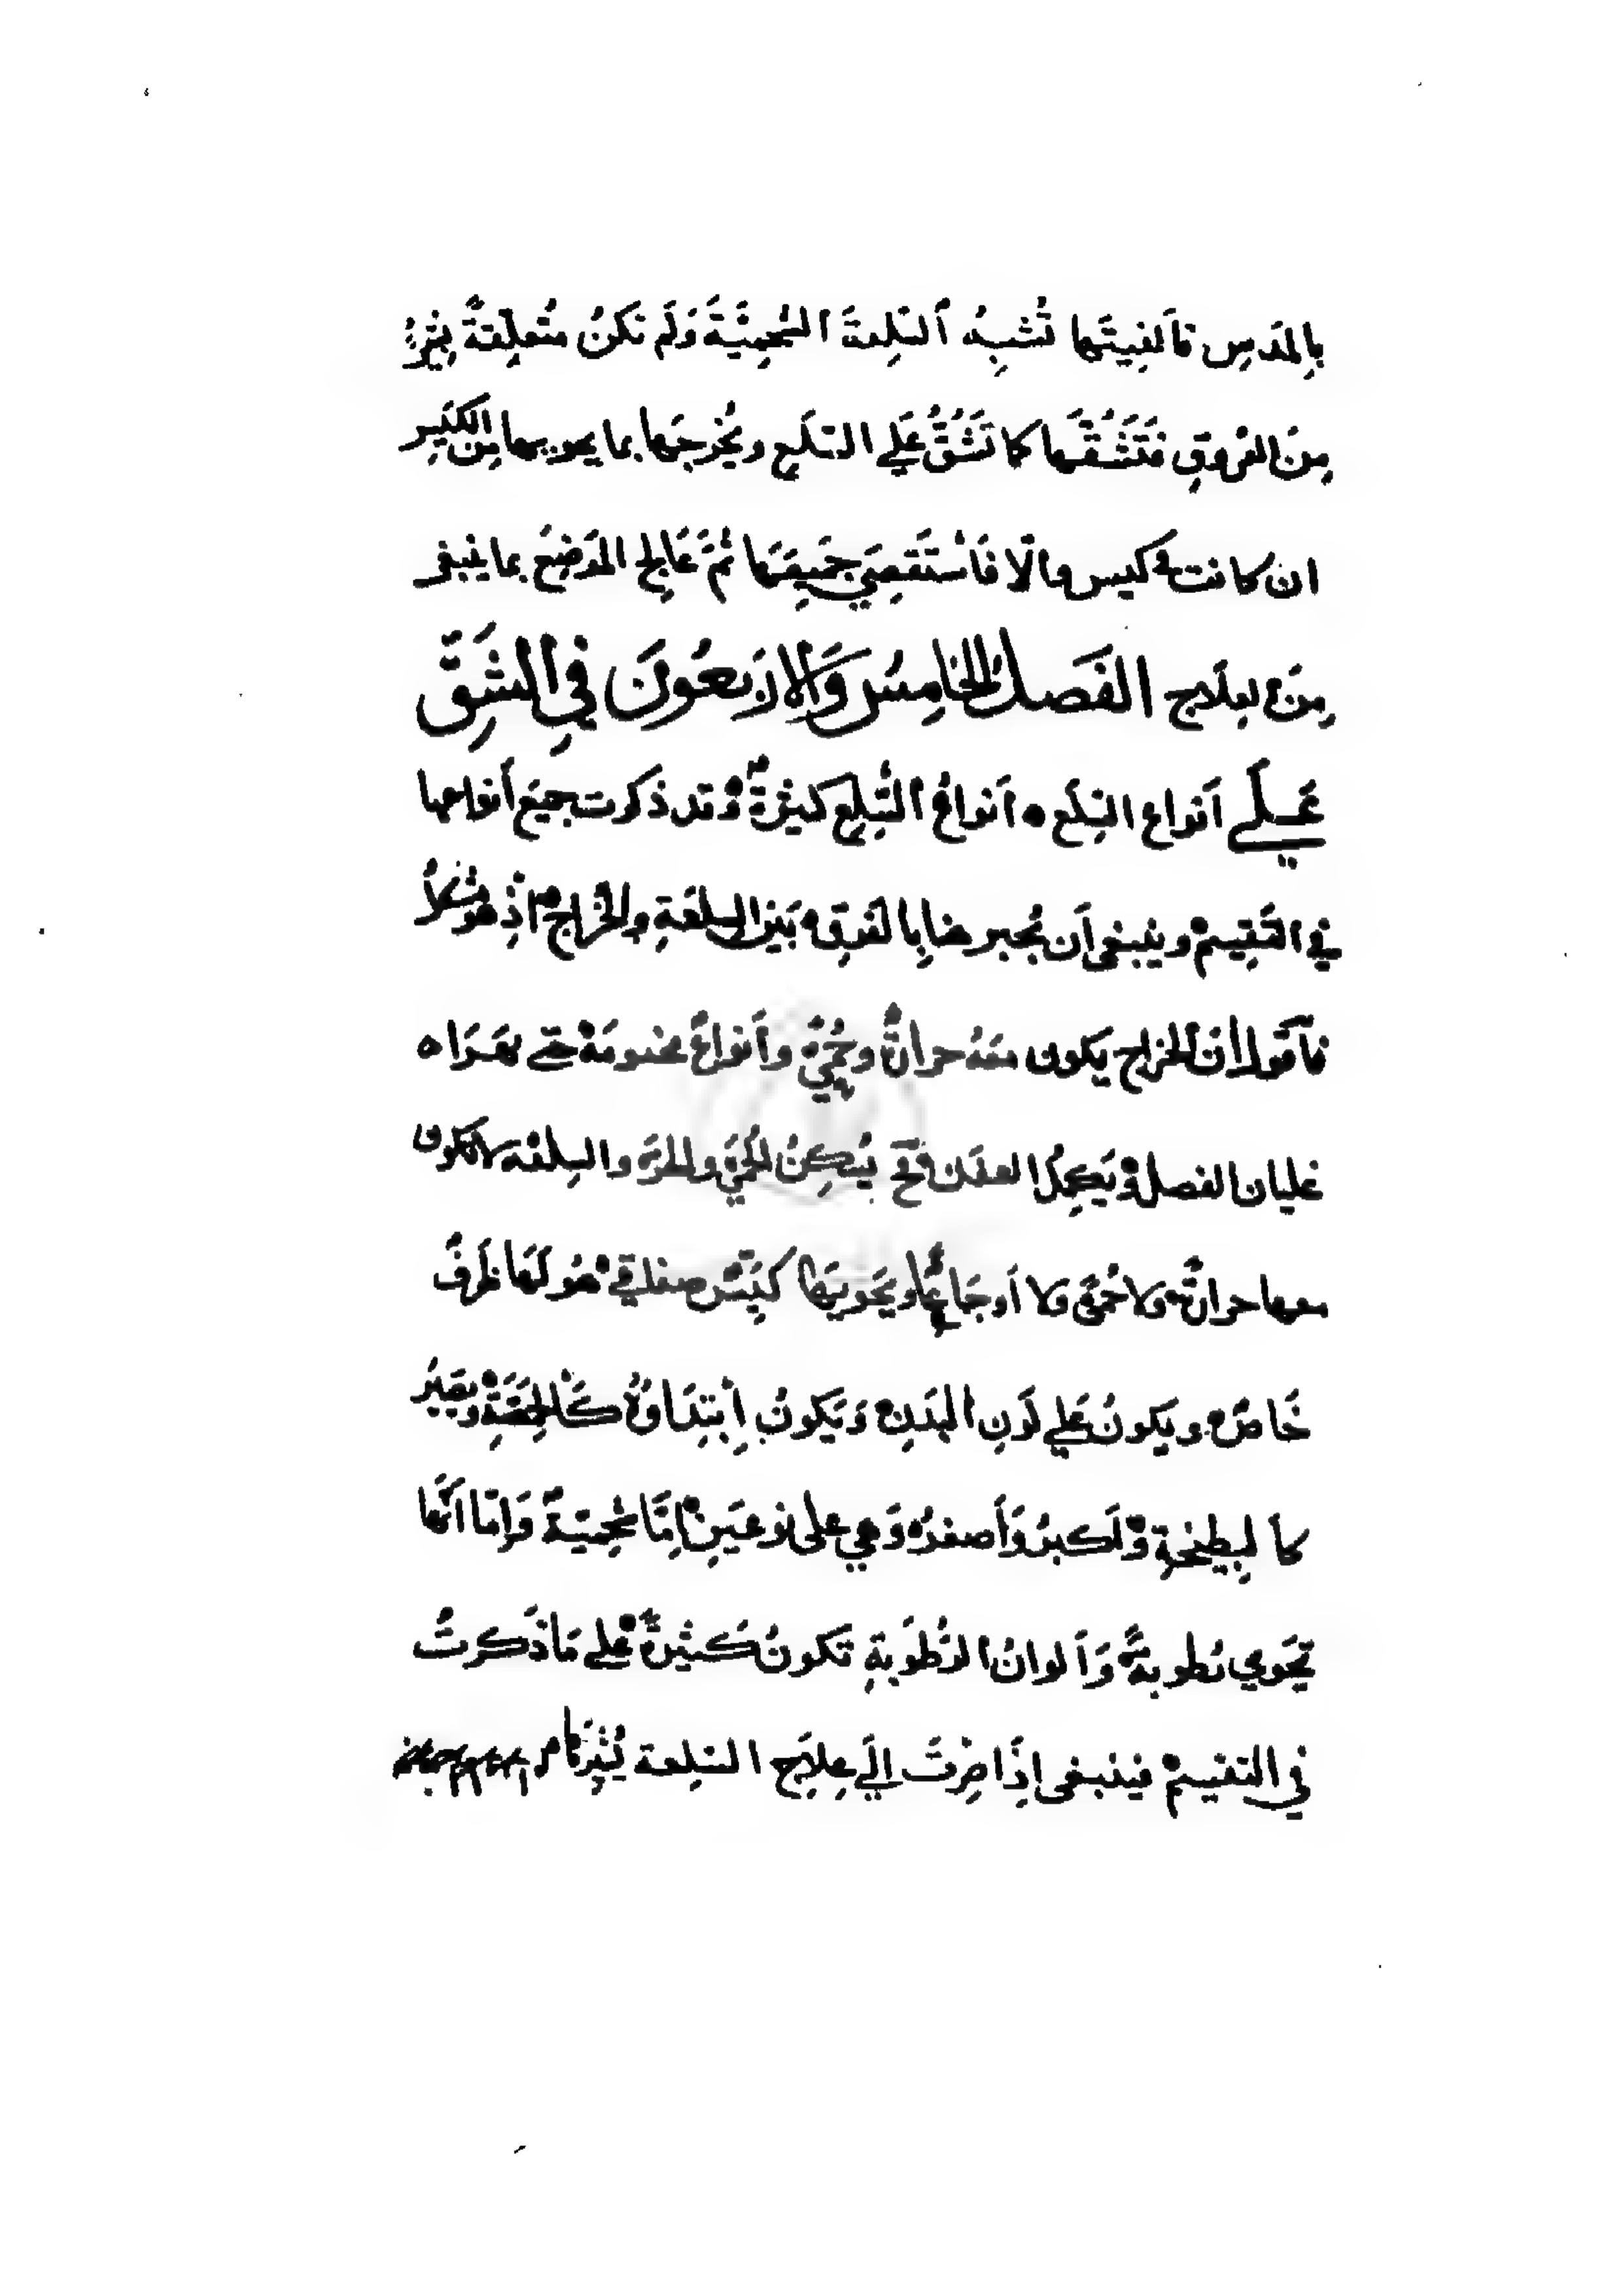 بِالمَدَسِ فَأَلفَيتَها تُشبِهُ اَلسّلِعةَ الشّحمِيّةَ وَلَم تَكُنْ مُتعلِقةً بِشَيءٍ
مِنَ العُروقِ فَتَشُقَّها كما تَشُقُّ عَلي السّلَعِ ويُخرجَها بما يحويها مِن الكيسِ
ان كانت في كيس والّا فَاَستَقصِي جَميعَها ثُمَّ عَالِج المَوضِعَ بما ينبغى
مِنَ لعِلَاجِ الفَصلُ الخامِسُ وَالاربَعُونَ فِي الشَقّ
عَلي أَنواع السِّلَع ه أَنواعُ السِّلَعِ كثيرةٌ وَقد ذكرت جميعَ أنواعها
في التَقسِيم وينبغى أن نُخبر هنا بِالفَرقِ بَين السلعَةِ والخُراج اذ هو مُشكلٌ
فأَقول أنّ الخراج يكون مَعَهُ حرارةٌ وحُمّيً وأَنواعٌ حتي يَهدَاه
غليان الفصل وَيَكمِلُ العفَن فَحِ يَسكِنُ الحُمّيَ والحرَّ والسِلعَه لا تكون
معها حرارةٌ ولا حُمّيً ولا اَوجَاعٌ ويَحويهَا كيسٌ صفاقيٌ هُو لَهَا ظَرفٌ
خَاصٌ ويكونُ عَلي لَونِ البَدَنِ وَيَكونُ اِبتِدَاؤهُ كَالحِمّصَةِ وتصيرُ
كالبِطيخةِ وَاَكبرُ وَأَصغرُ وَهي على نوعَينِ اِمَّا شَحمِيّةٌ وَاِمّا اَنّها
تَحَوي رُطوبةً وَاَلوانُ الرُطُوبةِ تكونُ كَثيرةٌ عَلي مَا ذَكرتُ
في التقسيم فينبغى اِذَا صِرتَ اِلَي عِلاج السّلِعة